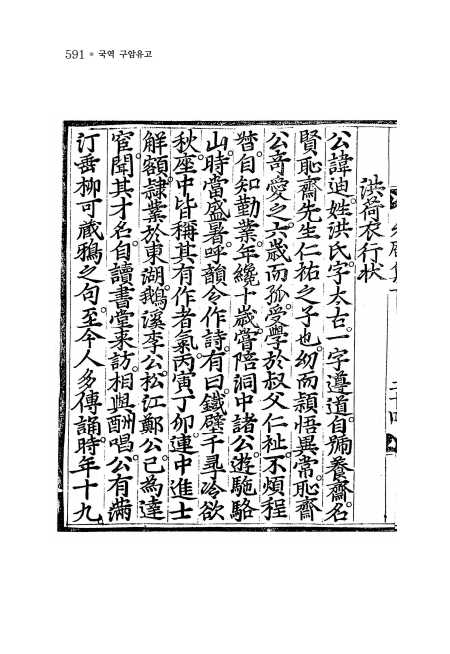 591 ● 국역 구암유고
洪荷衣行状
公諱迪姓洪氏字太古一字遵道自號養齋名
賢恥齋先生仁祐之子也幼而穎悟異常恥齋
公奇愛之六歲而孤受學於叔父仁祉不煩程
督自知勤業年纔十歲嘗陪洞中諸公遊駞駱
山時當盛暑呼韻令作詩有曰鐵壁千尋冷欲
秋座中皆稱其有作者氣丙寅丁卯連中進士
解額隷業於東湖鵝溪李公松江鄭公已為達
官聞其才名自讀書堂来訪相與酬唱公有滿
汀垂柳可藏鴉之句至今人多傳誦時年十九